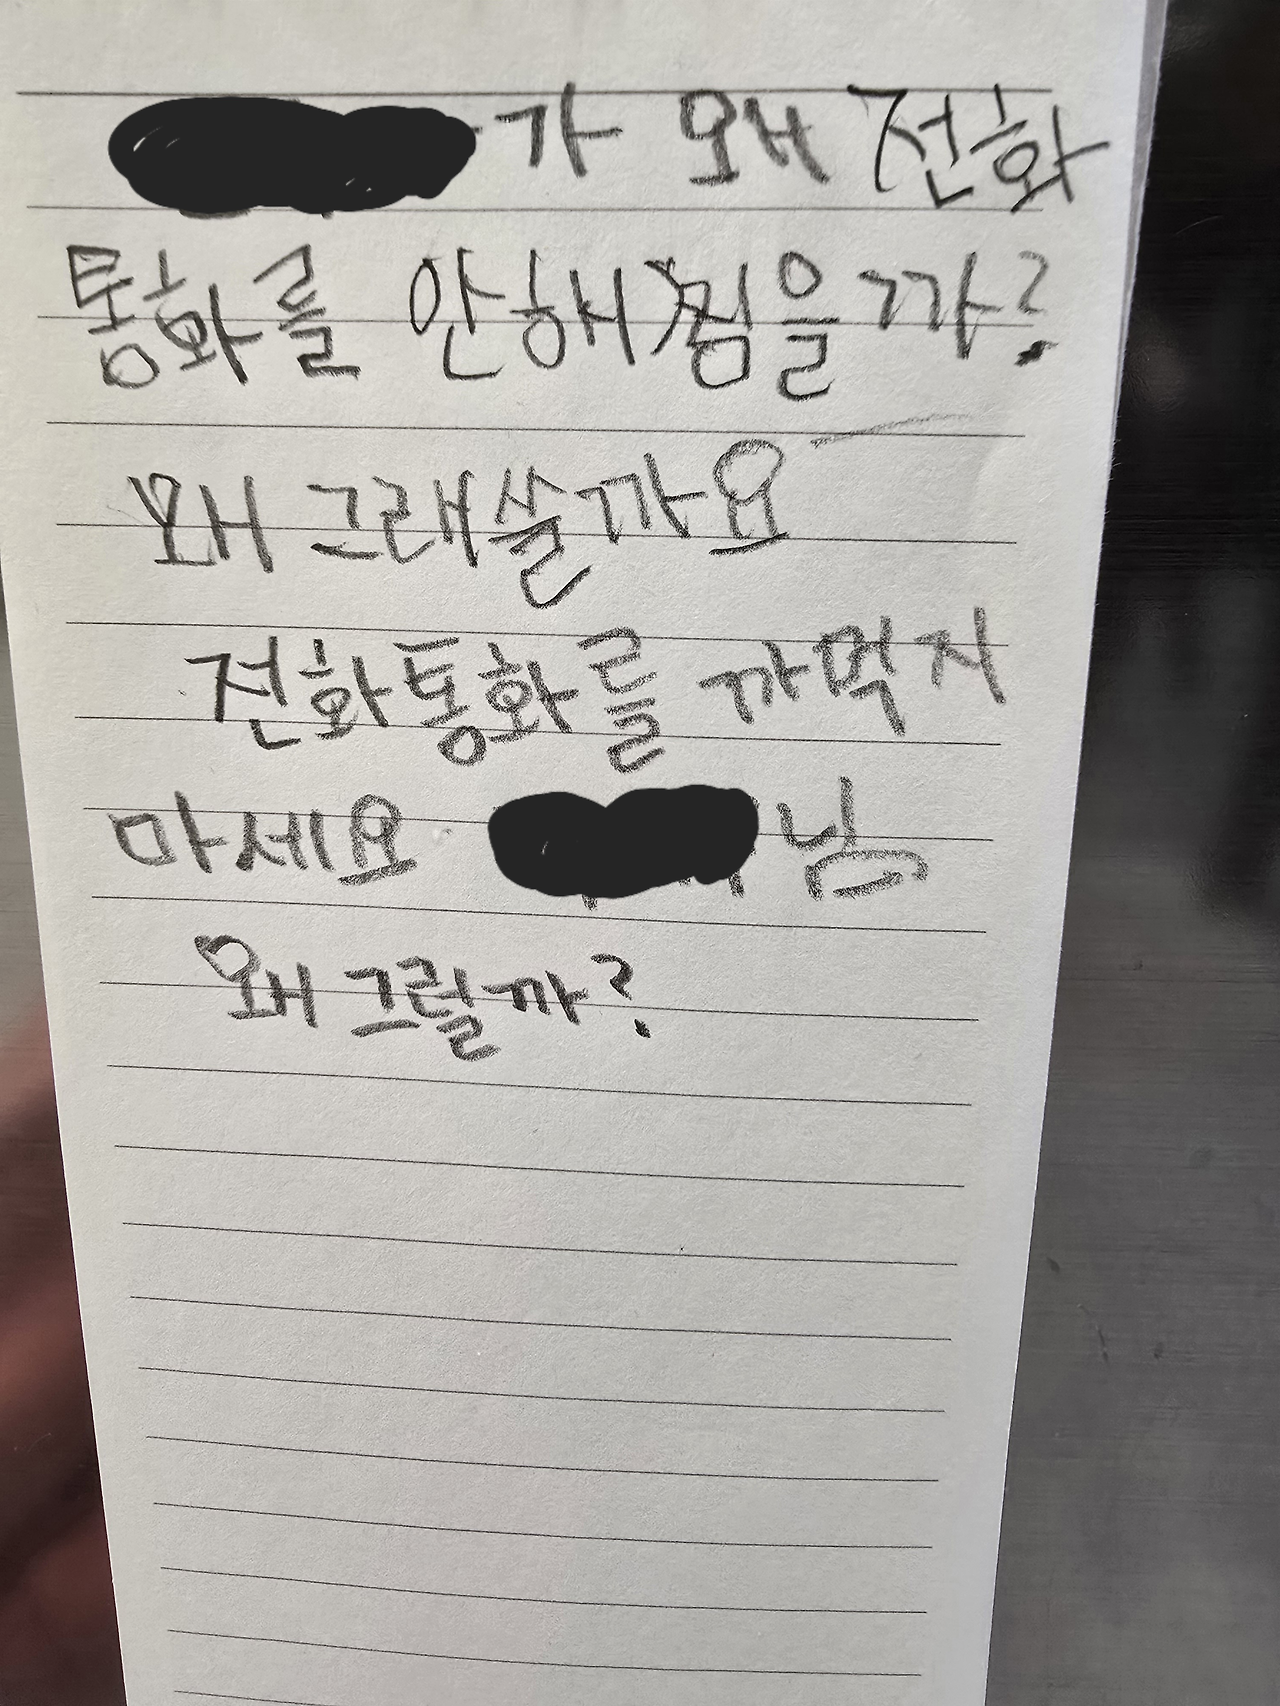 가 왜 전화
통화를 안해 을까?
왜 그래쓸까요
전화통화를 까먹지
마세요 님
왜 그럴까?